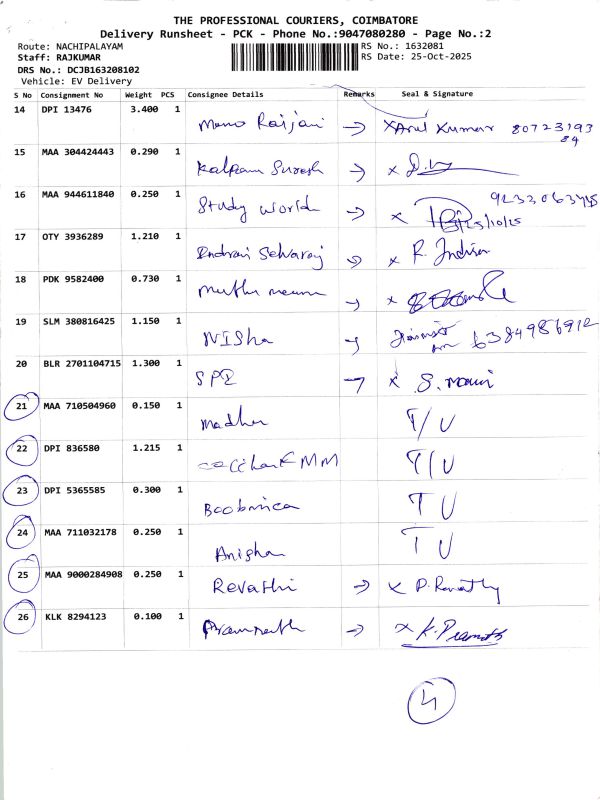 THE PROFESSIONAL COURIERS, COIMBATORE
Delivery Runsheet - PCK - Phone No.:9047080280 - Page No.:2
Route: NACHIPALAYAM
Staff: RAJKUMAR
DRS No.: DCJB163208102
Vehicle: EV Delivery
RS No.: 1632081
RS Date: 25-Oct-2025
S No Consignment No Weight PCS Consignee Details Remarks Seal & Signature
14 DPI 13476 3.400 1 → x Arul Kumar 80723193
84
15 MAA 304424443 0.290 1 Kalpana Suresh → x
16 MAA 944611840 0.250 1 Study world → x 25/10/25
17 OTY 3936289 1.210 1 Indrani Selvaraj → x R. Indira
18 PDK 9582400 0.730 1 → x
19 SLM 380816425 1.150 1 NISha → 6384986912
20 BLR 2701104715 1.300 1 → x S. mani
21 MAA 710504960 0.150 1 T/U
22 DPI 836580 1.215 1 T/U
23 DPI 5365585 0.300 1 T U
24 MAA 711032178 0.250 1 T U
25 MAA 9000284908 0.250 1 Revathi → x P. Revathy
26 KLK 8294123 0.100 1 → x K. Pramoth
4